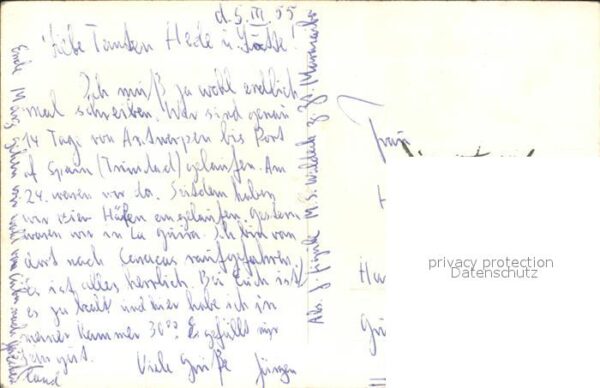 d. 5. III. 55
Liebe Tanten Hede u. Lotte!
Ich muß ja wohl endlich
mal schreiben. Wir sind genau
14 Tage von Antwerpen bis Port
of Spain (Trinidad) gelaufen. Am
24. waren wir da. Seitdem haben
wir vier Häfen angelaufen, gestern
waren wir in La Guaira. Ich bin von
dort nach Caracas raufgefahren,
es ist alles herrlich. Bei Euch ist
es ja kalt und hier habe ich in
meiner Kammer 30°. Es gefällt mir
sehr gut.
Viele Grüße Jürgen
Ende März gehen wir von Cuba nach
land
Abs. J. M.S. z. Zt. Maracaibo
Frau
H
Ha
privacy protection
Datenschutz